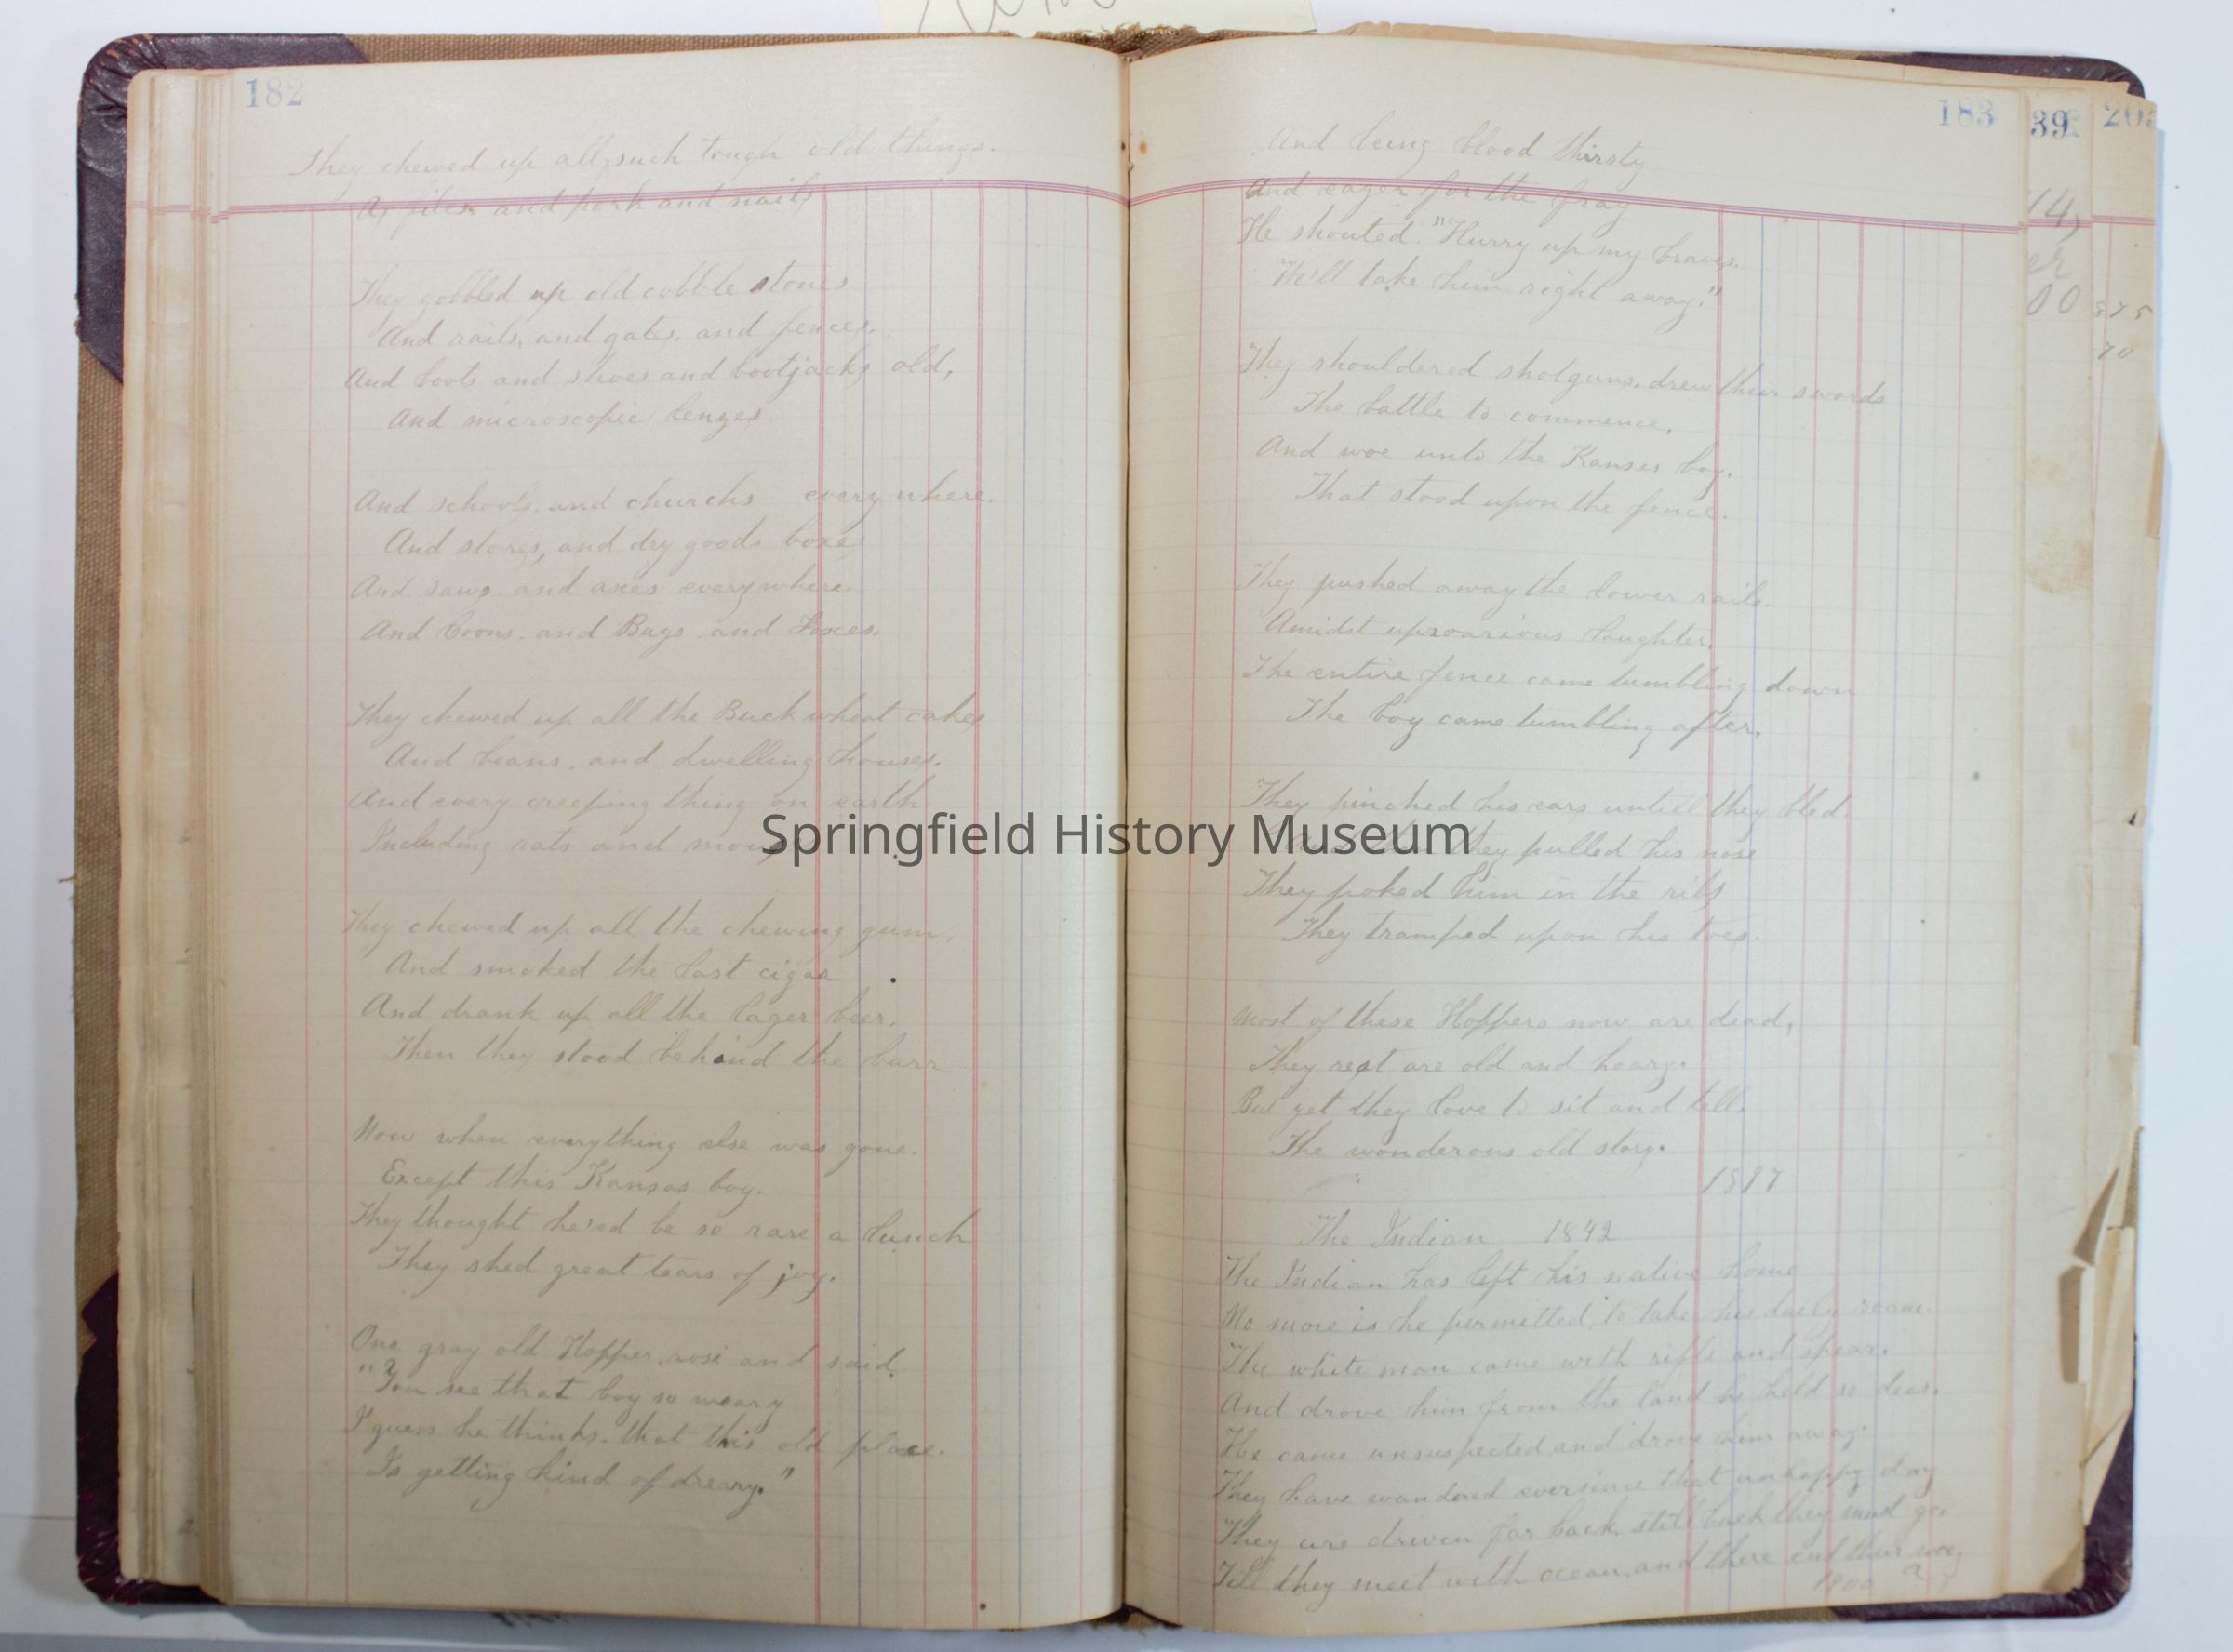 182
They chewed up all, such tough old things.
As files and pork and nails
They gobbled up old cobble stones
And rails, and gates, and fences.
And boots and shoes and bootjacks old,
And microscopic lenzes.
And schools, and churchs every where.
And stores, and dry goods boxes
And saws and axes everywhere.
And Coons. and Bugs. and Foxes.
They chewed up all the Buckwheat cakes
And beans, and dwelling houses.
And every creeping thing on earth
Including rats and
They chewed up all the chewing gum.
And smoked the last cigar
And drank up all the lager beer.
Then they stood behind the barr
Now when everything else was gone.
Except this Kansas boy.
They thought he'ed be so rare a lunch
They shed great tears of joy.
One gray old Hopper, rose and said.
"You see that boy so weary
I guess he thinks. that this old place.
Is getting kind of dreary."
183
And being blood thirsty
And eager for the fray
He shouted. "Hurry up my braves.
We'll take him right away."
They shouldered shotguns, drew their swords
The battle to commence,
And woe unto the Kanses boy.
That stood upon the fence.
They pushed away the lower rails.
Amidst uproarious laughter.
The entire fence came tumbling down
The boy came tumbling after.
They pinched his ears untill they bled.
they pulled his nose
They poked him in the ribs
They tramped upon his toes.
Most of these Hoppers now are dead,
They rest are old and hoary.
But yet they love to sit and tell.
The wonderous old story.
1897
The Indian 1892
The Indian has left his native home
No more is he permitted, to take his daily roam.
The white man came with rifle and spear.
And drove him from the land he held so dear.
He came unsuspected and drove him away.
They have wandered eversince that unhappy day
They are driven far back, still back they must go.
Till they meet with ocean, and there end their woe.
1900
39
203
14)
er
00
875
70
Springfield History Museum